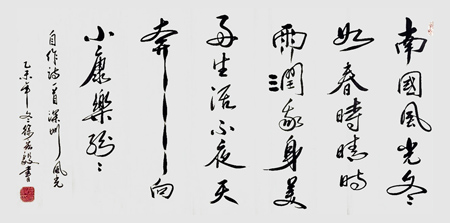 南國風光冬
如春時晴時
雨潤我身美
好生活不夜天
奔向
小康樂紛〻
自作詩一首深圳風光
乙未年冬書